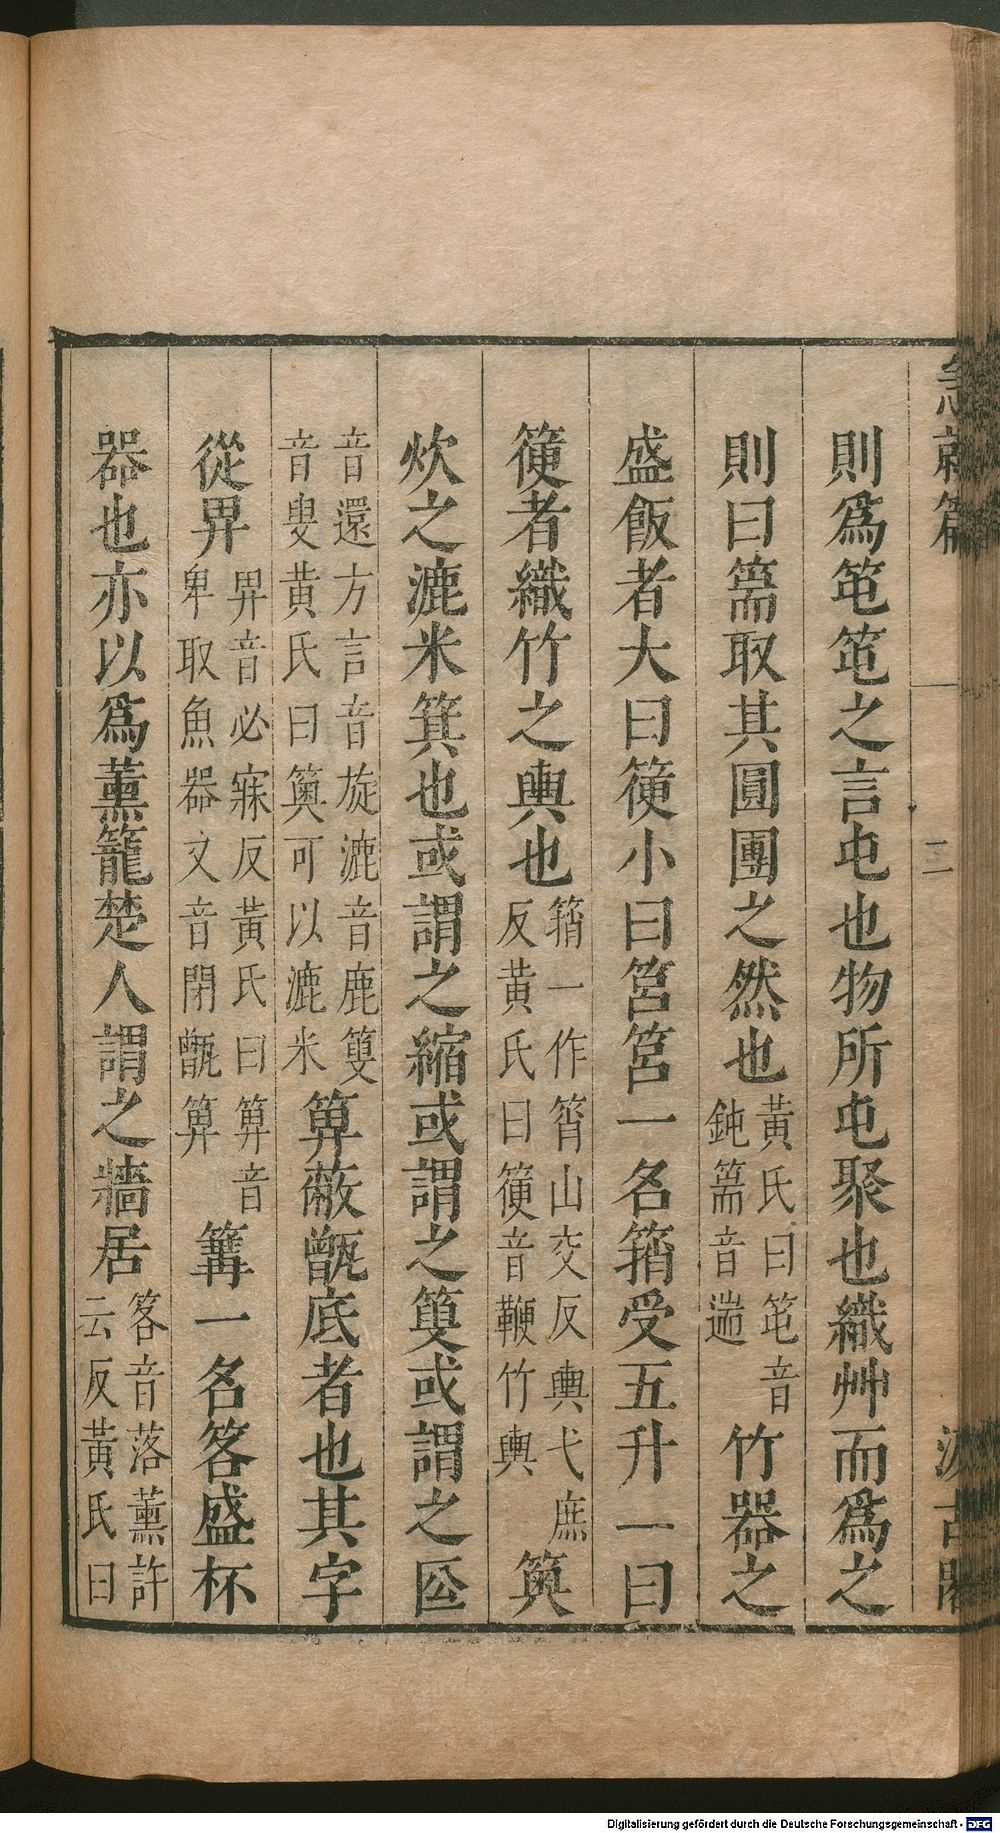 急就篇
二
汲古閣
則爲笹笹之言屯也物所屯聚也織艸而爲之
則曰篅取其圓團之然也黃氏曰笹音鈍篅音遄竹器之
盛飯者大曰箯小曰筥筥一名箱受五升一曰
箯者織竹之輿也箱一作筲山交反輿弋庶反黃氏曰箯音鞭竹輿䉛
炊之漉米箕也或謂之縮或謂之籔或謂之匼
音還方言音旋漉音鹿籔音叟黃氏曰䉛可以漉米箅蔽甑底者也其字
從畀畀音必寐反黃氏曰箅音卑取魚器又音閉甑箅篝一名客盛杯
器也亦以爲薰籠楚人謂之牆居客音落薰許云反黃氏曰
Digitalisierung gefördert durch die Deutsche Forschungsgemeinschaft - DFG